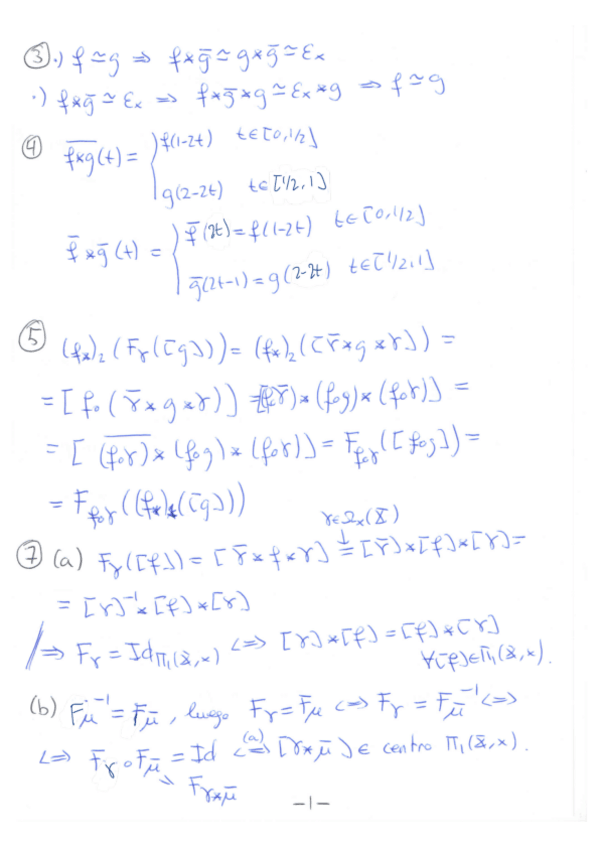 ③ ·) f ≃ g ⇒ f * ḡ ≃ g * ḡ ≃ εₓ
·) f * ḡ ≃ εₓ ⇒ f * ḡ * g ≃ εₓ * g ⇒ f ≃ g
④ \overline{f*g}(t) = { f(1-2t) t∈[0,1/2]
g(2-2t) t∈[1/2,1]
f̄ * ḡ(t) = { f̄(2t) = f(1-2t) t∈[0,1/2]
ḡ(2t-1) = g(2-2t) t∈[1/2,1]
⑤ (f_*)₂(F_γ([g])) = (f_*)₂([γ̄ * g * γ]) =
= [f∘(γ̄ * g * γ)] = [(f∘γ̄) * (f∘g) * (f∘γ)] =
= [\overline{(f∘γ)} * (f∘g) * (f∘γ)] = F_{f∘γ}([f∘g]) =
= F_{f∘γ}((f_*)([g]))
γ∈Ωₓ(X)
⑦ (a) F_γ([f]) = [γ̄ * f * γ] = [γ̄] * [f] * [γ] =
= [γ]⁻¹ * [f] * [γ]
⇒ F_γ = Id_{Π₁(X,x)} ⇔ [γ] * [f] = [f] * [γ]
∀[f]∈Π₁(X,x).
(b) F_μ⁻¹ = F_μ̄, luego F_γ = F_μ ⇔ F_γ = F_μ̄⁻¹ ⇔
⇔ F_γ ∘ F_μ̄ = Id ⇔ (a) [γ * μ̄] ∈ centro Π₁(X,x).
F_{γ*μ̄}
-1-